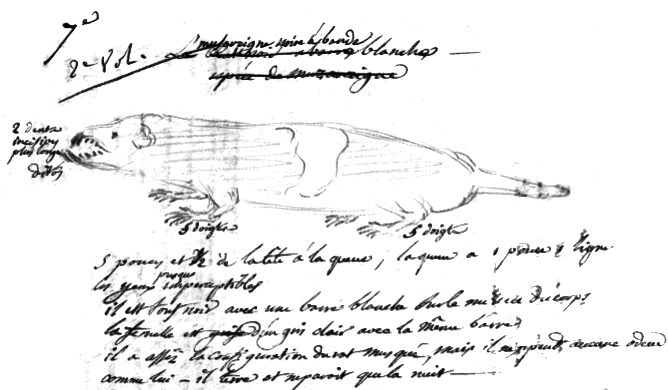 7e
2e Vol.
L'musaraigne noire à bande blanche
espèce de musaraigne
2 dents
incisives
plus longues
5 doigts
5 doigts
5 pouces et 1/2 de la tête à la queue, la queue a 1 pouce 1 ligne
les yeux presque imperceptibles
il est tout noir avec une barre blanche sur le milieu du corps
la femelle est gris clair avec la même barre
il a assez la configuration du rat musqué, mais il ne répand aucune odeur
comme lui – il terre et ne paroit que la nuit —